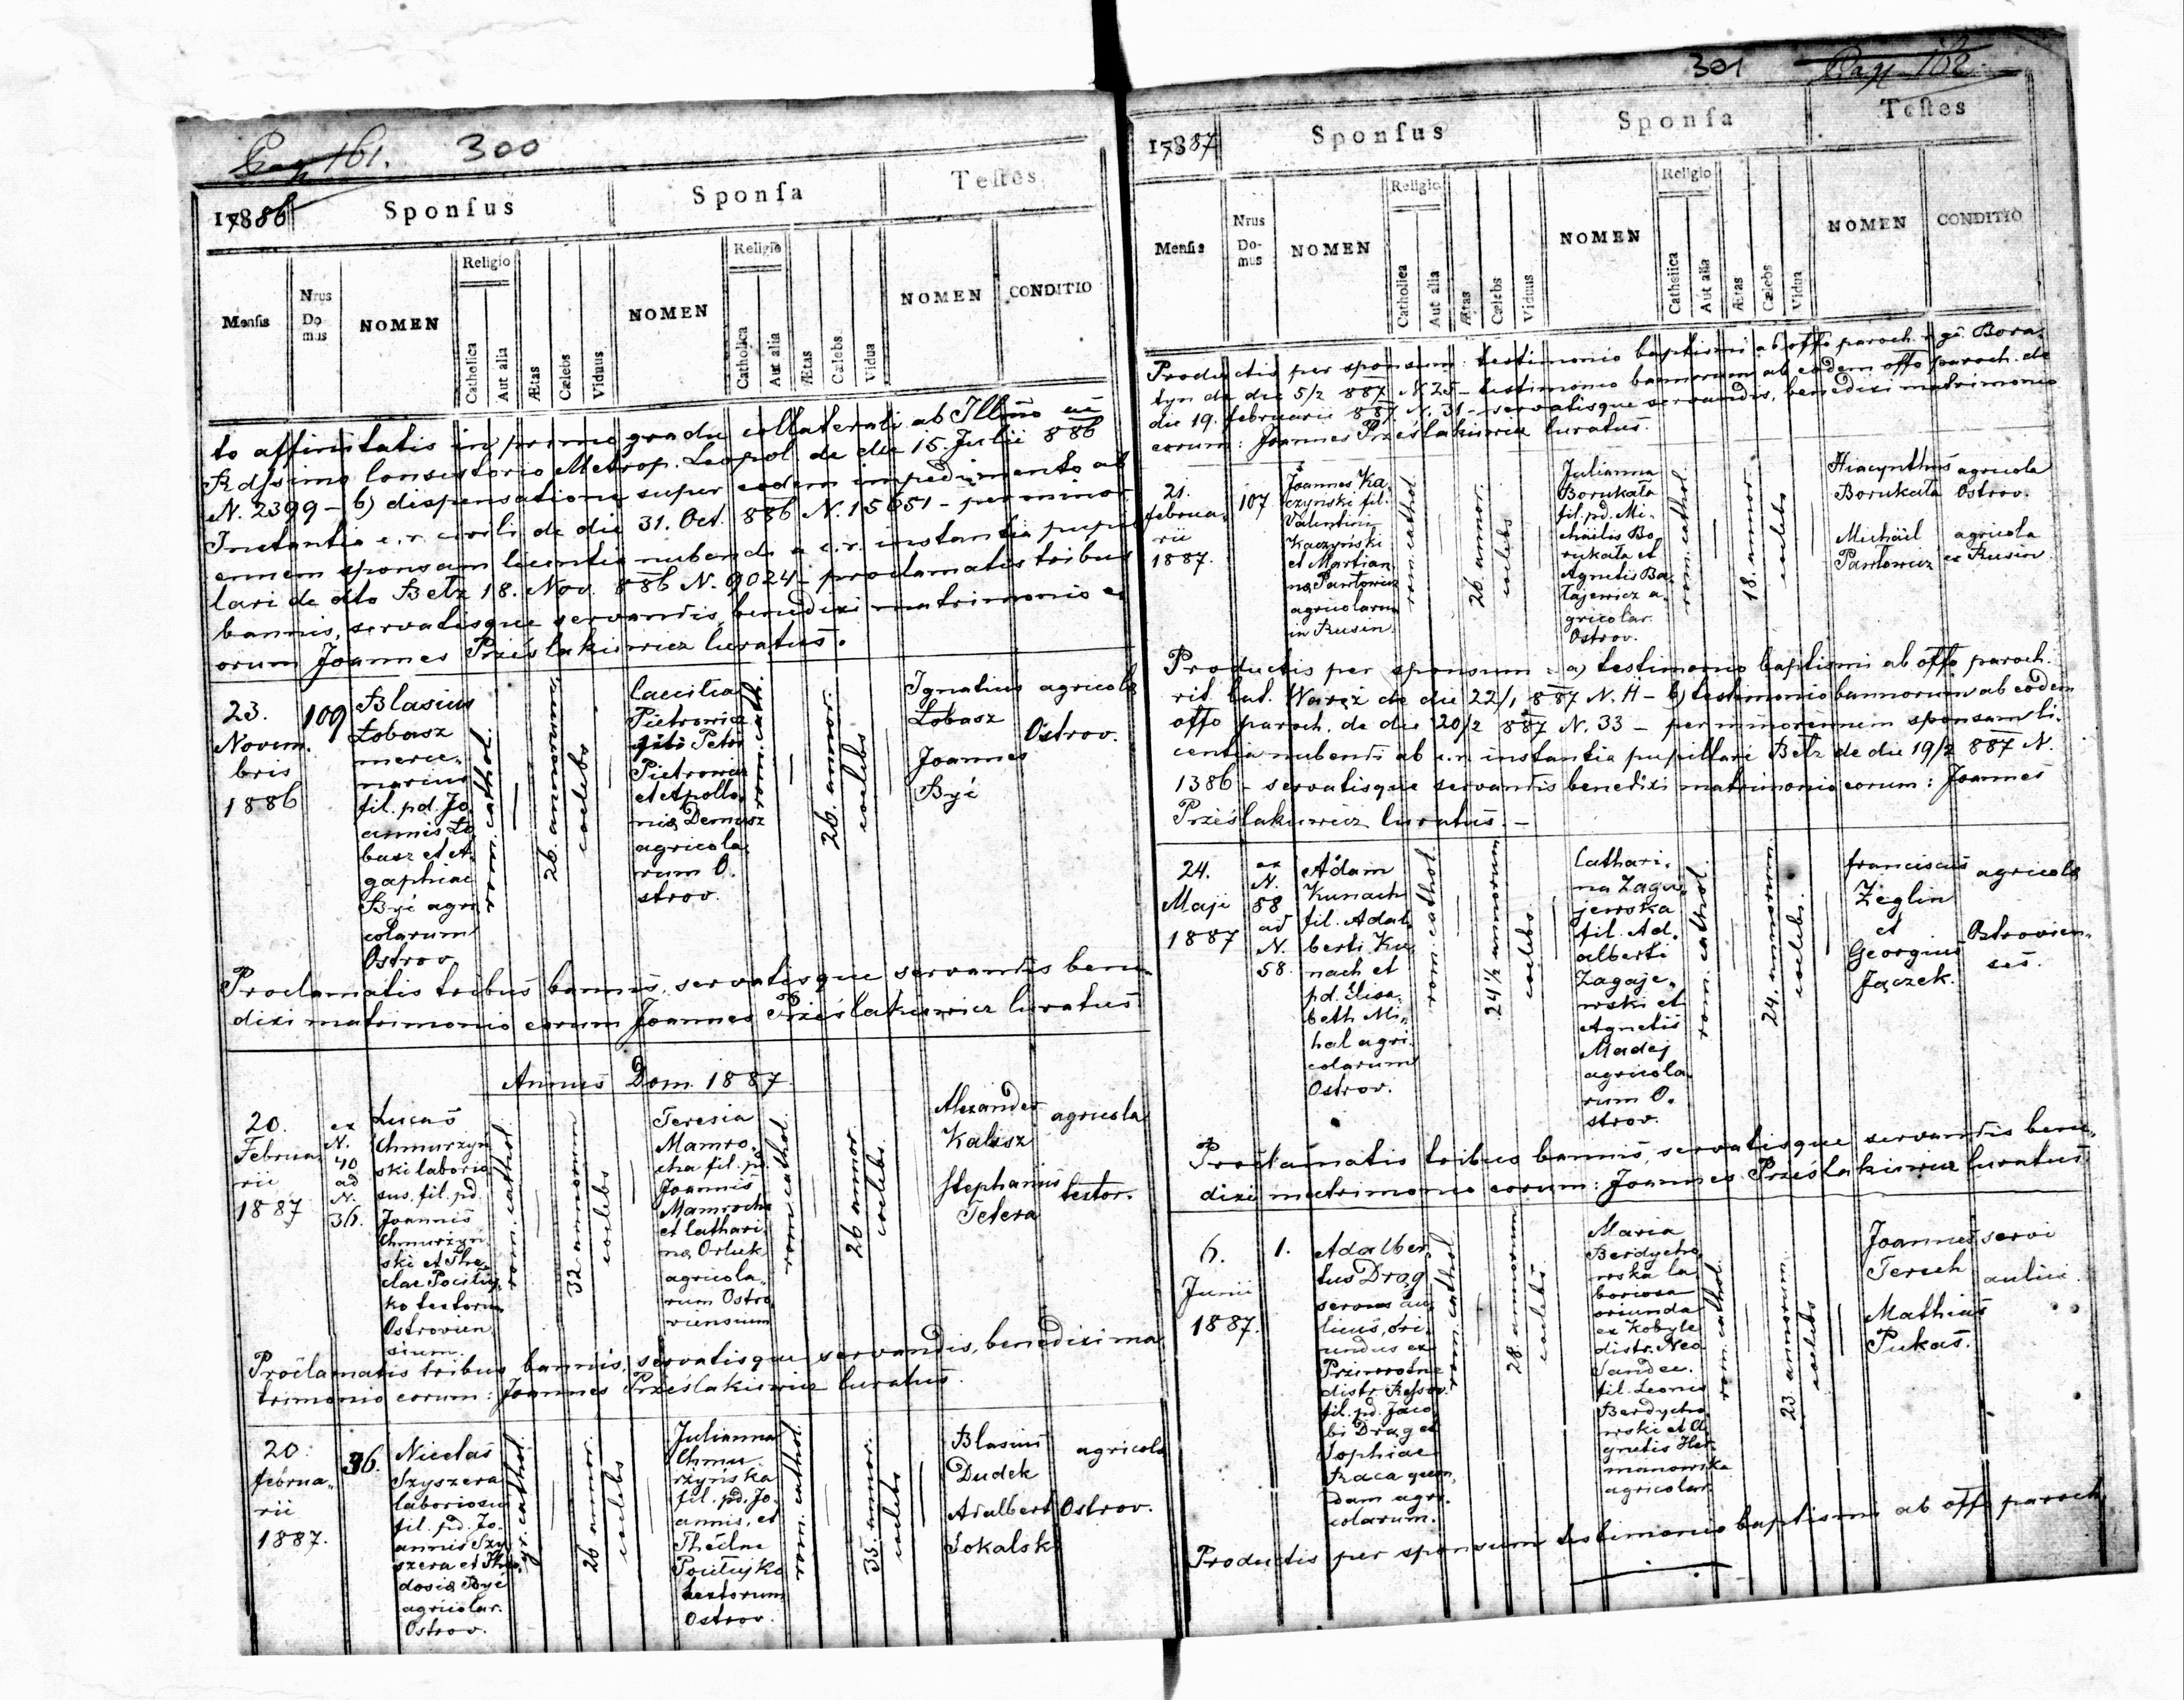 Pag 161. 300
17886 Sponſus Sponſa Teſtes
Menſis Nrus Domus NOMEN Religio Catholica Aut alia Ætas Cælebs Viduus NOMEN Religio Catholica Aut alia Ætas Cælebs Vidua NOMEN CONDITIO
to affinitatis in primo gradu collaterali ab Illmo ac
Rdssimo Consistorio Metrop. Leopol. de die 15. Julii 886
N. 2399 – b) dispensatione super eodem impedimento ab
Instantia c. r. civili de die 31. Oct. 886 N. 15651 – per minor
ennem sponsam licentia nubendi a c. r. instantia pupil
lari de dto Betz 18. Nov. 886 N. 9024 – proclamatis tribus
bannis, servatisque servandis, benedixi matrimonio e
orum Joannes Prześlakiewicz Curatus.
23.
Novem.
bris
1886
109
Blasius
Łobasz
merce.
narius
fil. pd. Jo
annis Ło
basz et A.
gaphiae
Być agri
colarum
Ostrov.
rom. cathol.
26. annorum
coelebs
Caecilia
Pietrowicz
Petri
Pietrowicz
et Apollo.
nia Demusz
agricola
rum O.
strov.
rom. cath.
26. annor.
coelebs
Ignatius agricola
Łobasz
Ostrov.
Joannes
Być
Proclamatis tribus bannis, servatisque servandis bene
dixi matrimonio eorum Joannes Prześlakiewicz Curatus
Annus Dom. 1887.
20.
Februa
rii
1887
ex
N.
40
ad
N.
36.
Lucas
Chmurzyń
ski laborio
sus, fil. pd.
Joannis
Chmurzyn
ski et The
clae Pociłuj
ko textorum
Ostrovien
sium.
rom. cathol.
32 annorum
coelebs
Teresia
Mamro.
cha fil. pd.
Joannis
Mamrocha
et Cathari
na Orluk
agricola.
rum Ostro
viensium
rom. cathol.
26 annor.
coelebs
Alexander agricola
Kalisz
Stephanus textor.
Tetera
Proclamatis tribus bannis, servatisque servandis, benedixi ma
trimonio eorum: Joannes Prześlakiewicz Curatus.
20.
februa.
rii
1887.
36.
Nicolas
Szyszera
laboriosus
fil. pd. Jo.
annis Szy
szera et Theo.
dosia Być
agricolar.
Ostrov.
gr. cathol.
26 annor.
coelebs
Julianna
Chmu.
rzyńska
fil. pd. Jo.
annis, et
Thecla
Pociłujko
textorum
Ostrov.
rom. cathol.
35. annor.
coelebs
Blasius agricola
Dudek
Adalbert Ostrov.
Sokalsk
301 Pag 162.
17887 Sponſus Sponſa Teſtes
Menſis Nrus Domus NOMEN Religio Catholica Aut alia Ætas Cælebs Viduus NOMEN Religio Catholica Aut alia Ætas Cælebs Vidua NOMEN CONDITIO
Productis per sponsum: testimonio baptismi ab offo paroch. r. gr. Bora.
tyn de die 5/2 887 N. 25 – testimonio bannorum ab eodem offo paroch. de
die 19. februarii 887 N. 31 – servatisque servandis, benedixi matrimonio
eorum: Joannes Prześlakiewicz Curatus.
21.
februa.
rii
1887.
107
Joannes Ka
czyński fil.
Valentini
Kaczyński
et Martian
na Pawłowicz
agricolarum
in Rusin.
rom. cathol.
26. annor.
coelebs
Julianna
Borukała
fil. pd. Mi.
chaelis Bo
rukała et
Agnetis Ba
łajewicz a.
gricolar.
Ostrov.
rom. cathol.
18. annor.
coelebs
Hiacynthus agricola
Borukała Ostrov.
Michäel agricola
Pawłowicz ex Rusin
Productis per sponsum: a) testimonio baptismi ab offo paroch.
rit. lat. Waręż de die 22/1 887 N. 11 – b) testimonio bannorum ab eodem
offo paroch. de die 20/2 887 N. 33 – per minorennem sponsam li.
centia nubendi ab c. r. instantia pupillari Betz de die 19/2 887 N.
1386 – servatisque servandis benedixi matrimonio eorum: Joannes
Prześlakiewicz Curatus. –
24.
Maji
1887
ex
N.
58
ad
N.
58.
Adam
Kunach
fil. Adal.
berti Ku
nach et
pd. Elisa.
beth Mi.
hal agri.
colarum
Ostrov.
rom. cathol.
24 1/2 annorum
coelebs
Cathari.
na Zaga.
jewska
fil. Ad.
alberti
Zagaje.
wski et
Agnetis
Madej
agricola.
rum O.
strov.
rom. cathol.
24. annorum
coelebs
franciscus agricola
Żeglin
et
Georgius Ostrovien.
Jączek. ses.
Proclamatis tribus bannis, servatisque servandis bene.
dixi matrimonio eorum: Joannes Prześlakiewicz Curatus.
6.
Junii
1887.
1.
Adalber
tus Drąg
servus au
licus, ori.
undus ex
distr. Ressov.
fil. pd. Jaco
bi Drąg et
Sophiae
Raca quon.
dam agri.
colarum.
rom. cathol.
28. annorum
coelebs
Maria
Berdycho
wska la
boriosa
oriunda
ex Kobyle
distr. Neo
Sandec.
fil. Leonis
Berdycho
wski et A.
gnetis Her
manowska
agricolar.
rom. cathol.
23 annorum
coelebs
Joannes servi
Terech aulici.
Mathias
Pukas.
Productis per sponsum testimonio baptismi ab offo paroch.